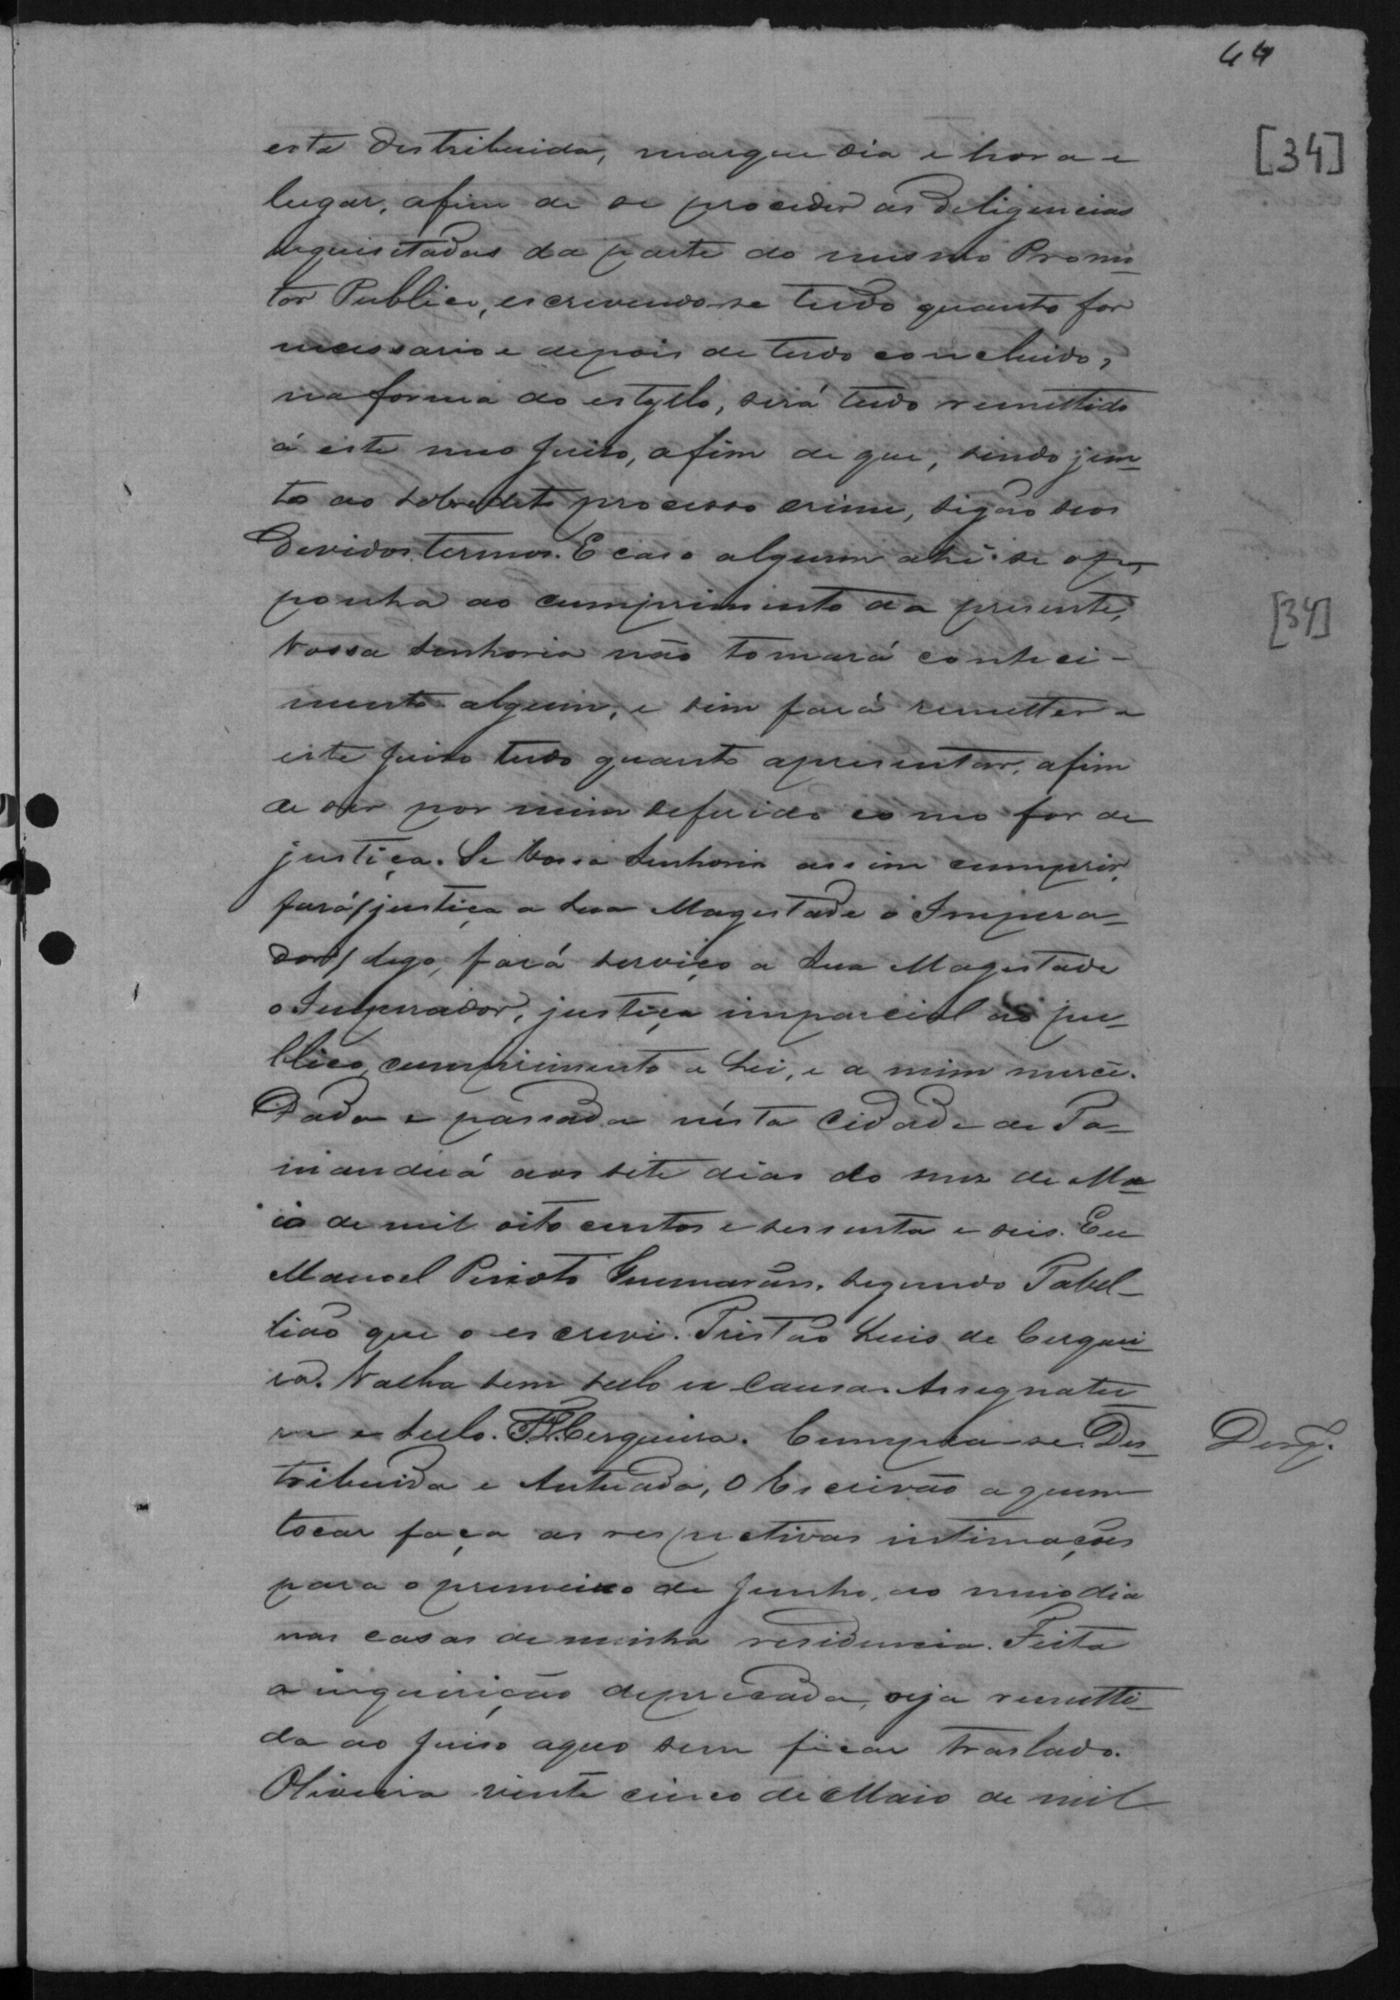 44
[34]
esta destribuida, marque dia e hora e
lugar, afim de se proceder as deligencias
requisitadas da parte do mesmo Promo-
tor Publico, escrevendo-se tudo quanto for
necessario e depois de tudo concluido,
na forma do estyllo, será tudo remettido
á este meo Juiso, afim de que, sendo jun-
to ao sobredito processo crime, sigão seos
devidos termos. E caso alguem ahi se op-
ponha ao cumprimento da presente,
[34]
Vossa Senhoria não tomará conheci-
mento algum, e sim fará remetter a
este Juiso tudo quanto apresentar, afim
de ser por mim deferido como for de
justiça. Se Vossa Senhoria assim cumprir,
fará/justiça a Sua Magestade o Impera-
dor/ digo, fará serviço a Sua Magestade
o Imperador, justiça imparcial ao pu-
blico, cumprimento a Lei, e a mim mercê.
Dada e passada nésta Cidade de Ta-
manduá aos sete dias do mez de Ma-
io de mil oito centos e sessenta e seis. Eu
Manoel Peixoto Guimarães, segundo Tabel-
lião que o escrevi. Tristão Luis de Cerquei-
ra. Valha sem sello ex causa. Assignatu-
ra e sello. T. L. Cerqueira. Cumpra-se. Des-
Desp.
tribuida e Autuada, O Escrivão a quem
tocar faça as respectivas intimações
para o primeiro de Junho, ao meio dia
nas casas de minha residencia. Feita
a inquirição deprecada, seja remetti-
da ao Juiso aquo sem ficar traslado.
Oliveira vinte cinco de Maio de mil